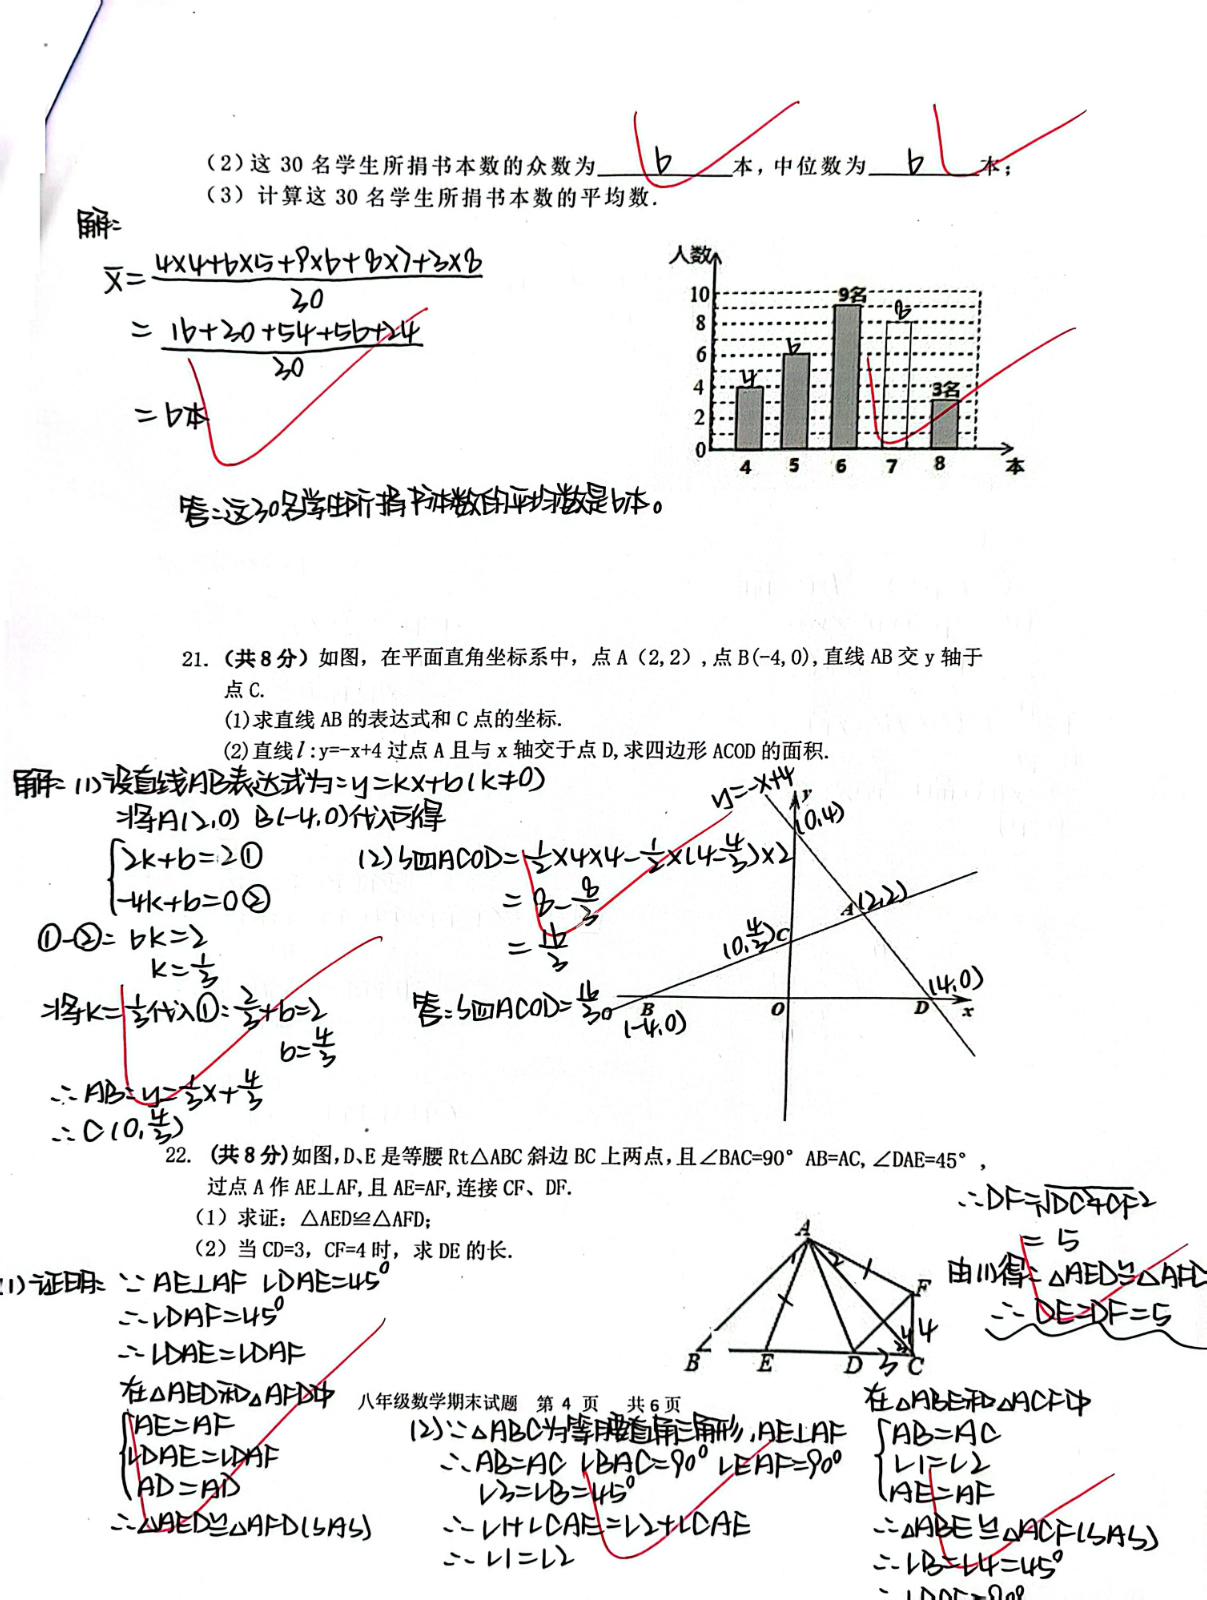 (2)这 30 名学生所捐书本数的众数为 6 本,中位数为 6 本;
(3) 计算这 30 名学生所捐书本数的平均数.
解:
x̄=(4×4+6×5+9×6+8×7+3×8)/30
=(16+30+54+56+24)/30
=6本
答:这30名学生所捐书本数的平均数是6本。
人数
10
8
6
4
2
0
4
6
9名
8
3名
4 5 6 7 8 本
21.(共8分)如图，在平面直角坐标系中，点 A（2,2）,点 B(-4,0),直线 AB 交 y 轴于
点 C.
(1)求直线 AB 的表达式和 C 点的坐标.
(2)直线 l:y=-x+4 过点 A 且与 x 轴交于点 D,求四边形 ACOD 的面积.
解:(1)设直线AB表达式为:y=kx+b(k≠0)
将A(2,0) B(-4,0)代入可得
{2k+b=2①
-4k+b=0②
①-②=6k=2
k=1/3
将k=1/3代入①:2/3+b=2
b=4/3
∴AB:y=1/3x+4/3
∴C(0,4/3)
(2)S四ACOD=1/2×4×4-1/2×(4-4/3)×2
=8-8/3
=16/3
答:S四ACOD=16/3。
y=-x+4
y
(0,4)
A(2,2)
(0,4/3)C
(4,0)
B O D x
(-4,0)
22. (共8分)如图,D、E 是等腰 Rt△ABC 斜边 BC 上两点,且∠BAC=90° AB=AC,∠DAE=45°，
过点 A 作 AE⊥AF,且 AE=AF,连接 CF、DF.
（1）求证：△AED≌△AFD;
（2）当 CD=3，CF=4 时，求 DE 的长.
(1)证明:∵AE⊥AF ∠DAE=45°
∴∠DAF=45°
∴∠DAE=∠DAF
在△AED和△AFD中
{AE=AF
∠DAE=∠DAF
AD=AD
∴△AED≌△AFD(SAS)
A
1
2
F
4
B E D 3 C
八年级数学期末试题 第 4 页 共 6 页
(2)∵△ABC为等腰直角三角形,AE⊥AF
∴AB=AC ∠BAC=90° ∠EAF=90°
∠3=∠B=45°
∴∠1+∠CAE=∠2+∠CAE
∴∠1=∠2
在△ABE和△ACF中
{AB=AC
∠1=∠2
AE=AF
∴△ABE≌△ACF(SAS)
∴∠B=∠4=45°
∴DF=√DC²+CF²
=5
由(1)得:△AED≌△AFD
∴DE=DF=5